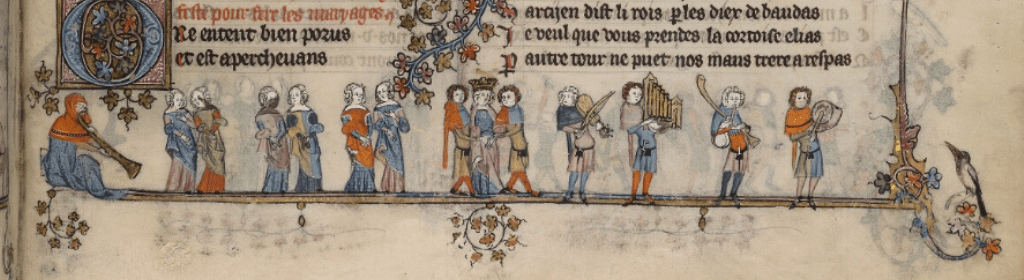 feste pour fere les maryages
ORe entent bien porus
et est aperchevans
M arcijen dist li rois ꝑ les diex de baudas
I e veul que vous prendes la cortoise elias
P autre tour ne puet nos maus trere a respas